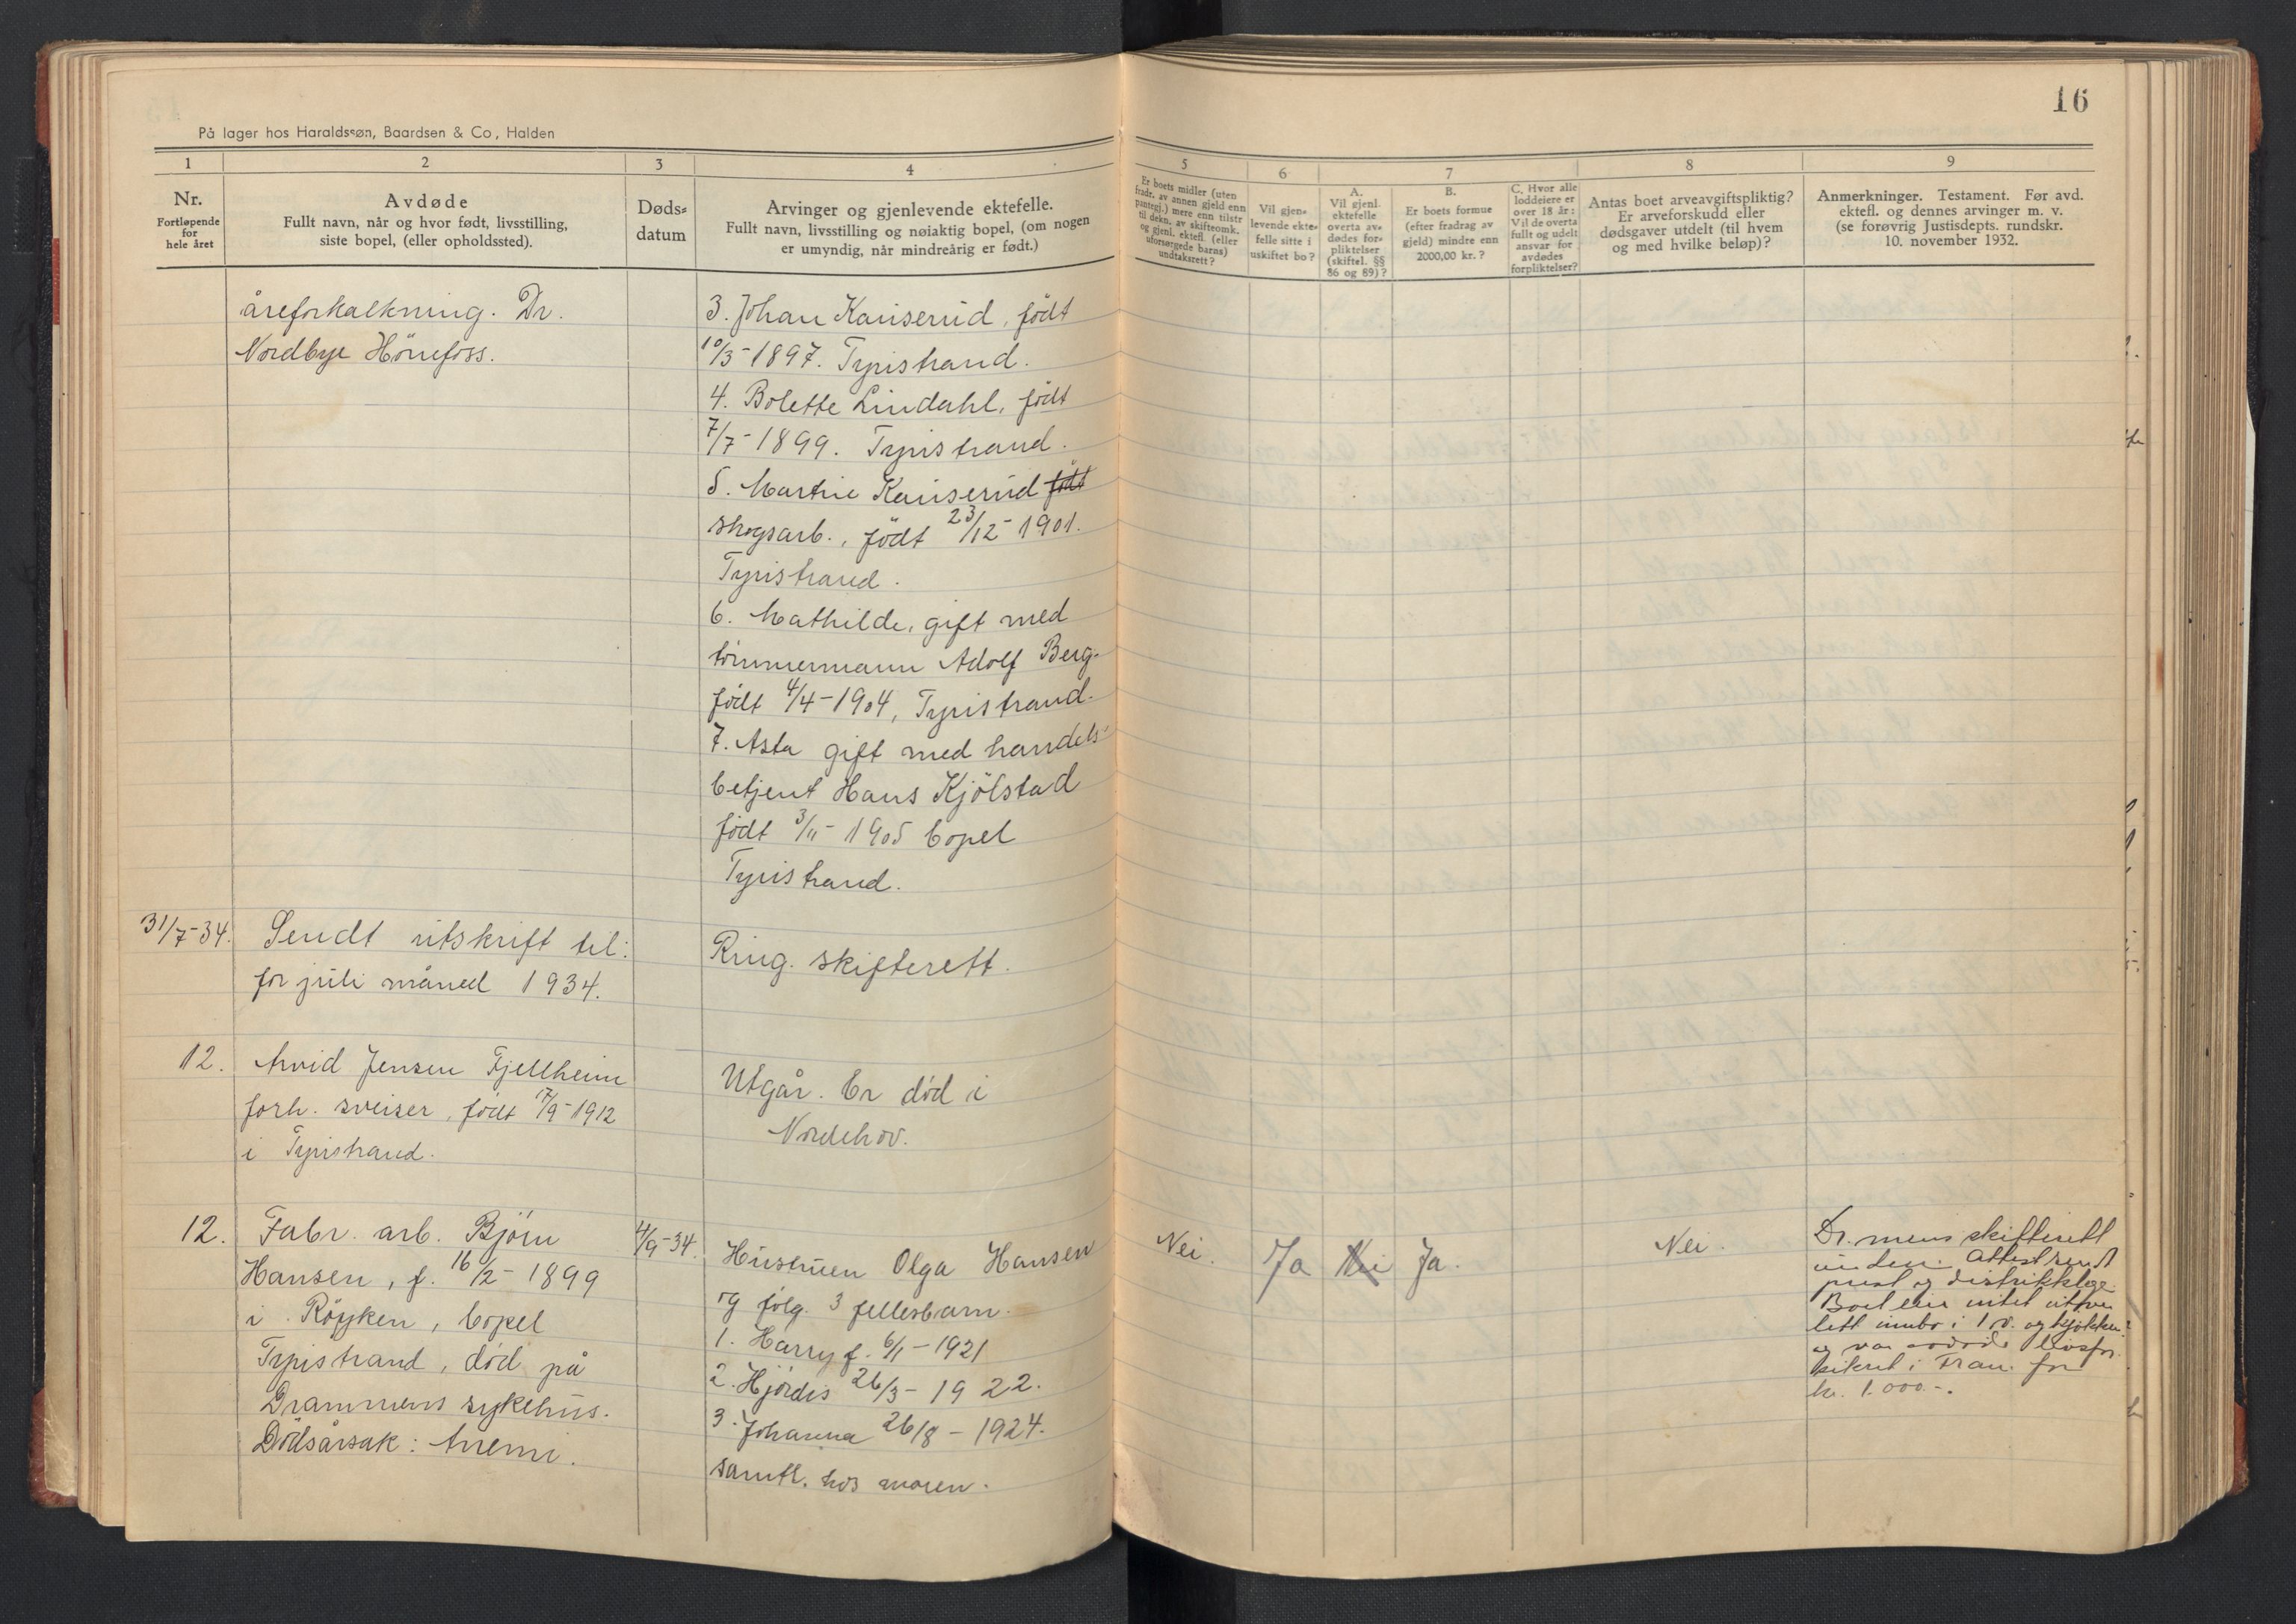 16
På lager hos Haraldssøn, Baardsen & Co, Halden
1
2
3
4
5
6
7
8
9
Nr.
Fortløpende
for
hele året
Avdøde
Fullt navn, når og hvor født, livsstilling,
siste bopel, (eller opholdssted).
Døds-
datum
Arvinger og gjenlevende ektefelle.
Fullt navn, livsstilling og nøiaktig bopel, (om nogen
er umyndig, når mindreårig er født.)
Er boets midler (uten
fradr. av annen gjeld enn
pantegj.) mere enn tilstr
til dekn. av skifteomk.
og gjenl. ektefl. (eller
uforsørgede barns)
undtaksrett?
Vil gjen-
levende ekte-
felle sitte i
uskiftet bo?
A.
Vil gjenl
ektefelle
overta av-
dødes for-
pliktelser
(skiftel. §§
86 og 89)?
B.
Er boets formue
(efter fradrag av
gjeld) mindre enn
2000,00 kr.?
C. Hvor alle
loddeiere er
over 18 år:
Vil de overta
fullt og udelt
ansvar for
avdødes
forpliktelser?
Antas boet arveavgiftspliktig?
Er arveforskudd eller
dødsgaver utdelt (til hvem
og med hvilke beløp)?
Anmerkninger. Testament. Før avd.
ektefl. og dennes arvinger m. v.
(se forøvrig Justisdepts. rundskr.
10. november 1932.
åreforkalkning. Dr.
Nordbye Hönefoss.
3. Johan Kauserud, födt
10/3-1897. Tyristrand.
4. Bolette Lindahl, födt
7/7-1899. Tyristrand.
5. Martin Kauserud födt
skogsarb., födt 23/12-1901.
Tyristrand.
6. Mathilde, gift med
tömmermann Adolf Berg.
födt 4/4-1904, Tyristrand.
7. Asta gift med handels-
betjent Hans Kjölstad
födt 3/11-1905 bopel
Tyristrand.
31/7-34. Sendt utskrift til: Ring. skifterett.
for juli måned 1934.
12. Arvid Jensen Fjellheim
forh. sveiser, födt 7/9-1912
i Tyristrand.
Utgår. Er död i
Norderhov.
12. Fabr. arb. Björn
Hansen, f. 16/2-1899
i Röyken, bopel
Tyristrand, död på
Drammens sykehus.
Dödsårsak: Anemi.
4/9-34.
Hustruen Olga Hansen
og fölg. 3 fellesbarn.
1. Harry f. 6/1-1921
2. Hjördis 26/3-1922.
3. Johanna 26/8-1924.
samtl. hos moren.
Nei.
Ja
Nei
Ja.
Nei.
Dr. mens skifterett
Attest sendt
prest og distriktslege.
Boet eier intet utover
litt innbo i 1 v. og kjökken
og var avdöde livsfor-
sikret i Fram for
kr. 1.000-.